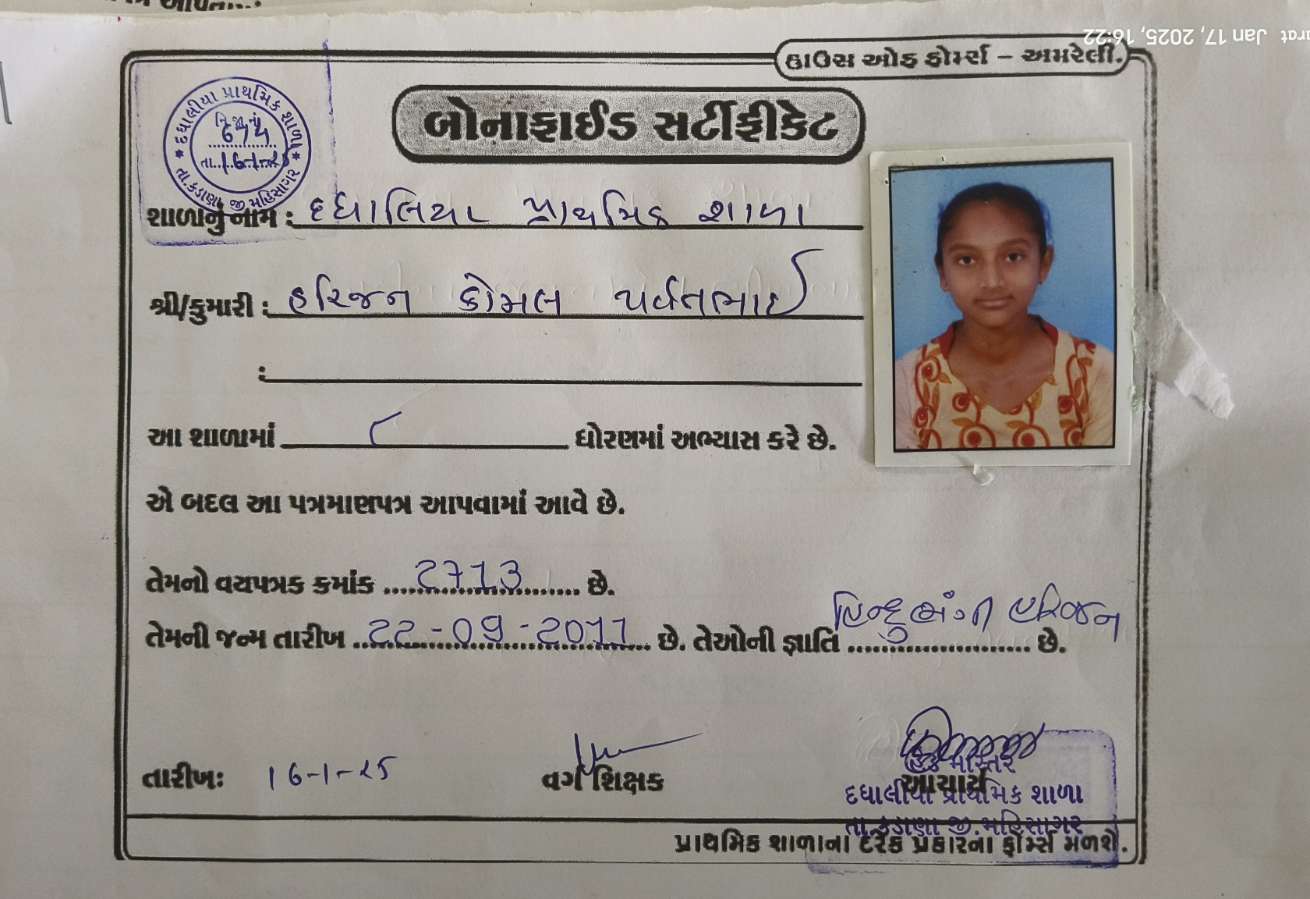 હાઉસ ઓફ ફોર્મ્સ – અમરેલી.
Jan 17, 2025, 16:22
બોનાફાઈડ સર્ટીફીકેટ
દધાલીયા પ્રાથમિક શાળા
નિ.જા.નં. 674
તા. 16-1-25
તા.કડાણા જી.મહિસાગર
શાળાનું નામ : દધાલિયા પ્રાથમિક શાળા
શ્રી/કુમારી : હરિજન કોમલ પર્વતભાઈ
:
આ શાળામાં ૮ ધોરણમાં અભ્યાસ કરે છે.
એ બદલ આ પત્રમાણપત્ર આપવામાં આવે છે.
તેમનો વયપત્રક કમાંક ....2713.... છે.
તેમની જન્મ તારીખ ..22-09-2011.. છે. તેઓની જ્ઞાતિ હિન્દુ ભંગી હરિજન છે.
તારીખઃ 16-1-25 વર્ગ શિક્ષક આચાર્ય
હેડ માસ્તર
દધાલીયા પ્રાથમિક શાળા
તા.કડાણા જી.મહિસાગર
પ્રાથમિક શાળાના દરેક પ્રકારના ફોર્મ્સ મળશે.